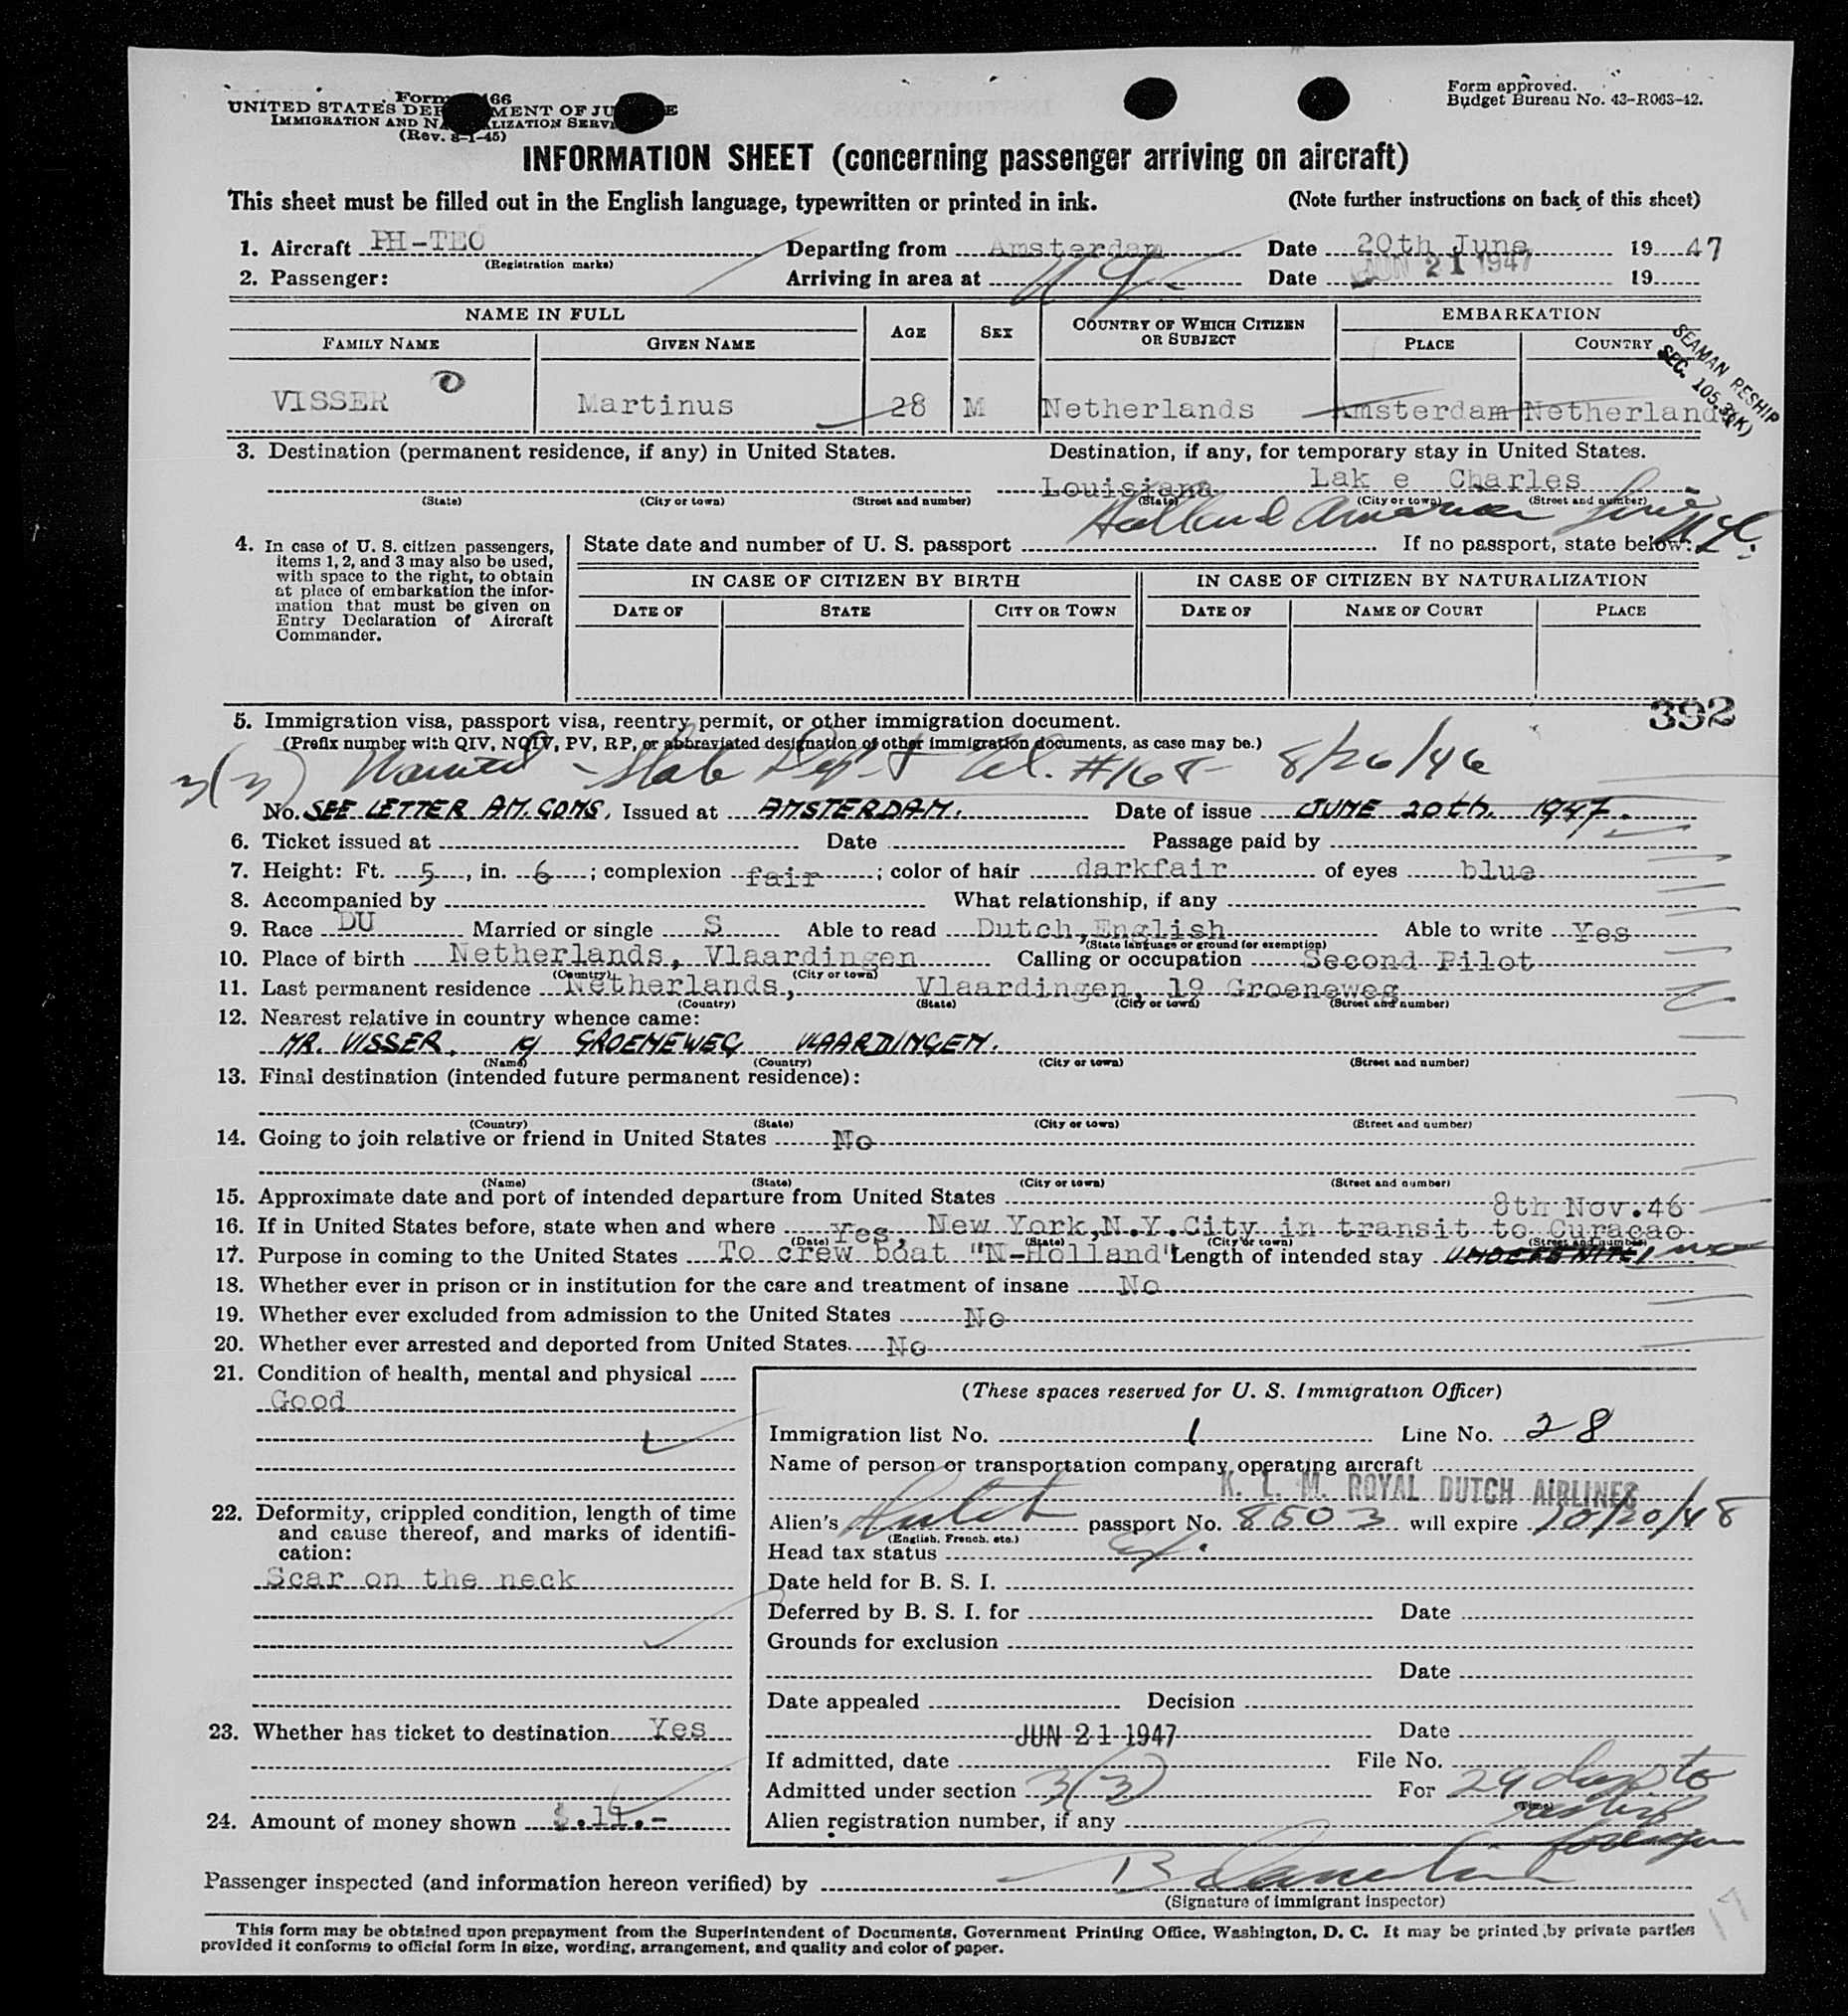 Form 66
UNITED STATES DEP MENT OF JU E
IMMIGRATION AND N LIZATION SERV
(Rev. 8-1-45)
Form approved.
Budget Bureau No. 43-R063-42.
INFORMATION SHEET (concerning passenger arriving on aircraft)
This sheet must be filled out in the English language, typewritten or printed in ink. (Note further instructions on back of this sheet)
1. Aircraft PH-TEO Departing from Amsterdam Date 20th June 1947
(Registration marks)
2. Passenger: Arriving in area at N Y Date JUN 21 1947 19
NAME IN FULL AGE SEX COUNTRY OF WHICH CITIZEN OR SUBJECT EMBARKATION
FAMILY NAME GIVEN NAME PLACE COUNTRY
SEAMAN RESHIP
SEC. 105.3 (K)
VISSER Martinus 28 M Netherlands Amsterdam Netherland
3. Destination (permanent residence, if any) in United States. Destination, if any, for temporary stay in United States.
Louisiana Lak e Charles
(State) (City or town) (Street and number) (State) (City or town) (Street and number)
Holland American Line N.Y.
4. In case of U. S. citizen passengers, items 1, 2, and 3 may also be used, with space to the right, to obtain at place of embarkation the information that must be given on Entry Declaration of Aircraft Commander.
State date and number of U. S. passport If no passport, state below:
IN CASE OF CITIZEN BY BIRTH IN CASE OF CITIZEN BY NATURALIZATION
DATE OF STATE CITY OR TOWN DATE OF NAME OF COURT PLACE
392
5. Immigration visa, passport visa, reentry permit, or other immigration document.
(Prefix number with QIV, NQIV, PV, RP, or abbreviated designation of other immigration documents, as case may be.)
3(3) Waived - State Dep't Tel. #168- 8/26/46
No. SEE LETTER AM. CONS, Issued at AMSTERDAM. Date of issue JUNE 20th. 1947.
6. Ticket issued at Date Passage paid by
7. Height: Ft. 5, in. 6; complexion fair; color of hair darkfair of eyes blue
8. Accompanied by What relationship, if any
9. Race DU Married or single S Able to read Dutch,English Able to write Yes
(State language or ground for exemption)
10. Place of birth Netherlands, Vlaardingen Calling or occupation Second Pilot
(Country) (City or town)
11. Last permanent residence Netherlands, Vlaardingen, 19 Groeneweg
(Country) (State) (City or town) (Street and number)
12. Nearest relative in country whence came:
MR. VISSER. 19 GROENEWEG VLAARDINGEN.
(Name) (Country) (City or town) (Street and number)
13. Final destination (intended future permanent residence):
(Country) (State) (City or town) (Street and number)
14. Going to join relative or friend in United States No
(Name) (State) (City or town) (Street and number)
15. Approximate date and port of intended departure from United States 8th Nov.46
16. If in United States before, state when and where Yes, New York,N.Y.City in transit to Curaçao
(Date) (State) (City or town) (Street and number)
17. Purpose in coming to the United States To crew boat "N-Holland" Length of intended stay
18. Whether ever in prison or in institution for the care and treatment of insane No
19. Whether ever excluded from admission to the United States No
20. Whether ever arrested and deported from United States. No
21. Condition of health, mental and physical
Good
22. Deformity, crippled condition, length of time and cause thereof, and marks of identification:
Scar on the neck
23. Whether has ticket to destination Yes
24. Amount of money shown $.11.-
(These spaces reserved for U. S. Immigration Officer)
Immigration list No. 1 Line No. 28
Name of person or transportation company operating aircraft
K. L. M. ROYAL DUTCH AIRLINES
Alien's Dutch passport No. 8503 will expire 10/20/48
(English, French, etc.)
Head tax status
Date held for B. S. I.
Deferred by B. S. I. for Date
Grounds for exclusion
Date
Date appealed Decision
JUN 21 1947 Date
If admitted, date File No.
Admitted under section 3(3) For 29 days to
(Time)
reship
foreign
Alien registration number, if any
Passenger inspected (and information hereon verified) by
(Signature of immigrant inspector)
This form may be obtained upon prepayment from the Superintendent of Documents, Government Printing Office, Washington, D. C. It may be printed by private parties
provided it conforms to official form in size, wording, arrangement, and quality and color of paper.